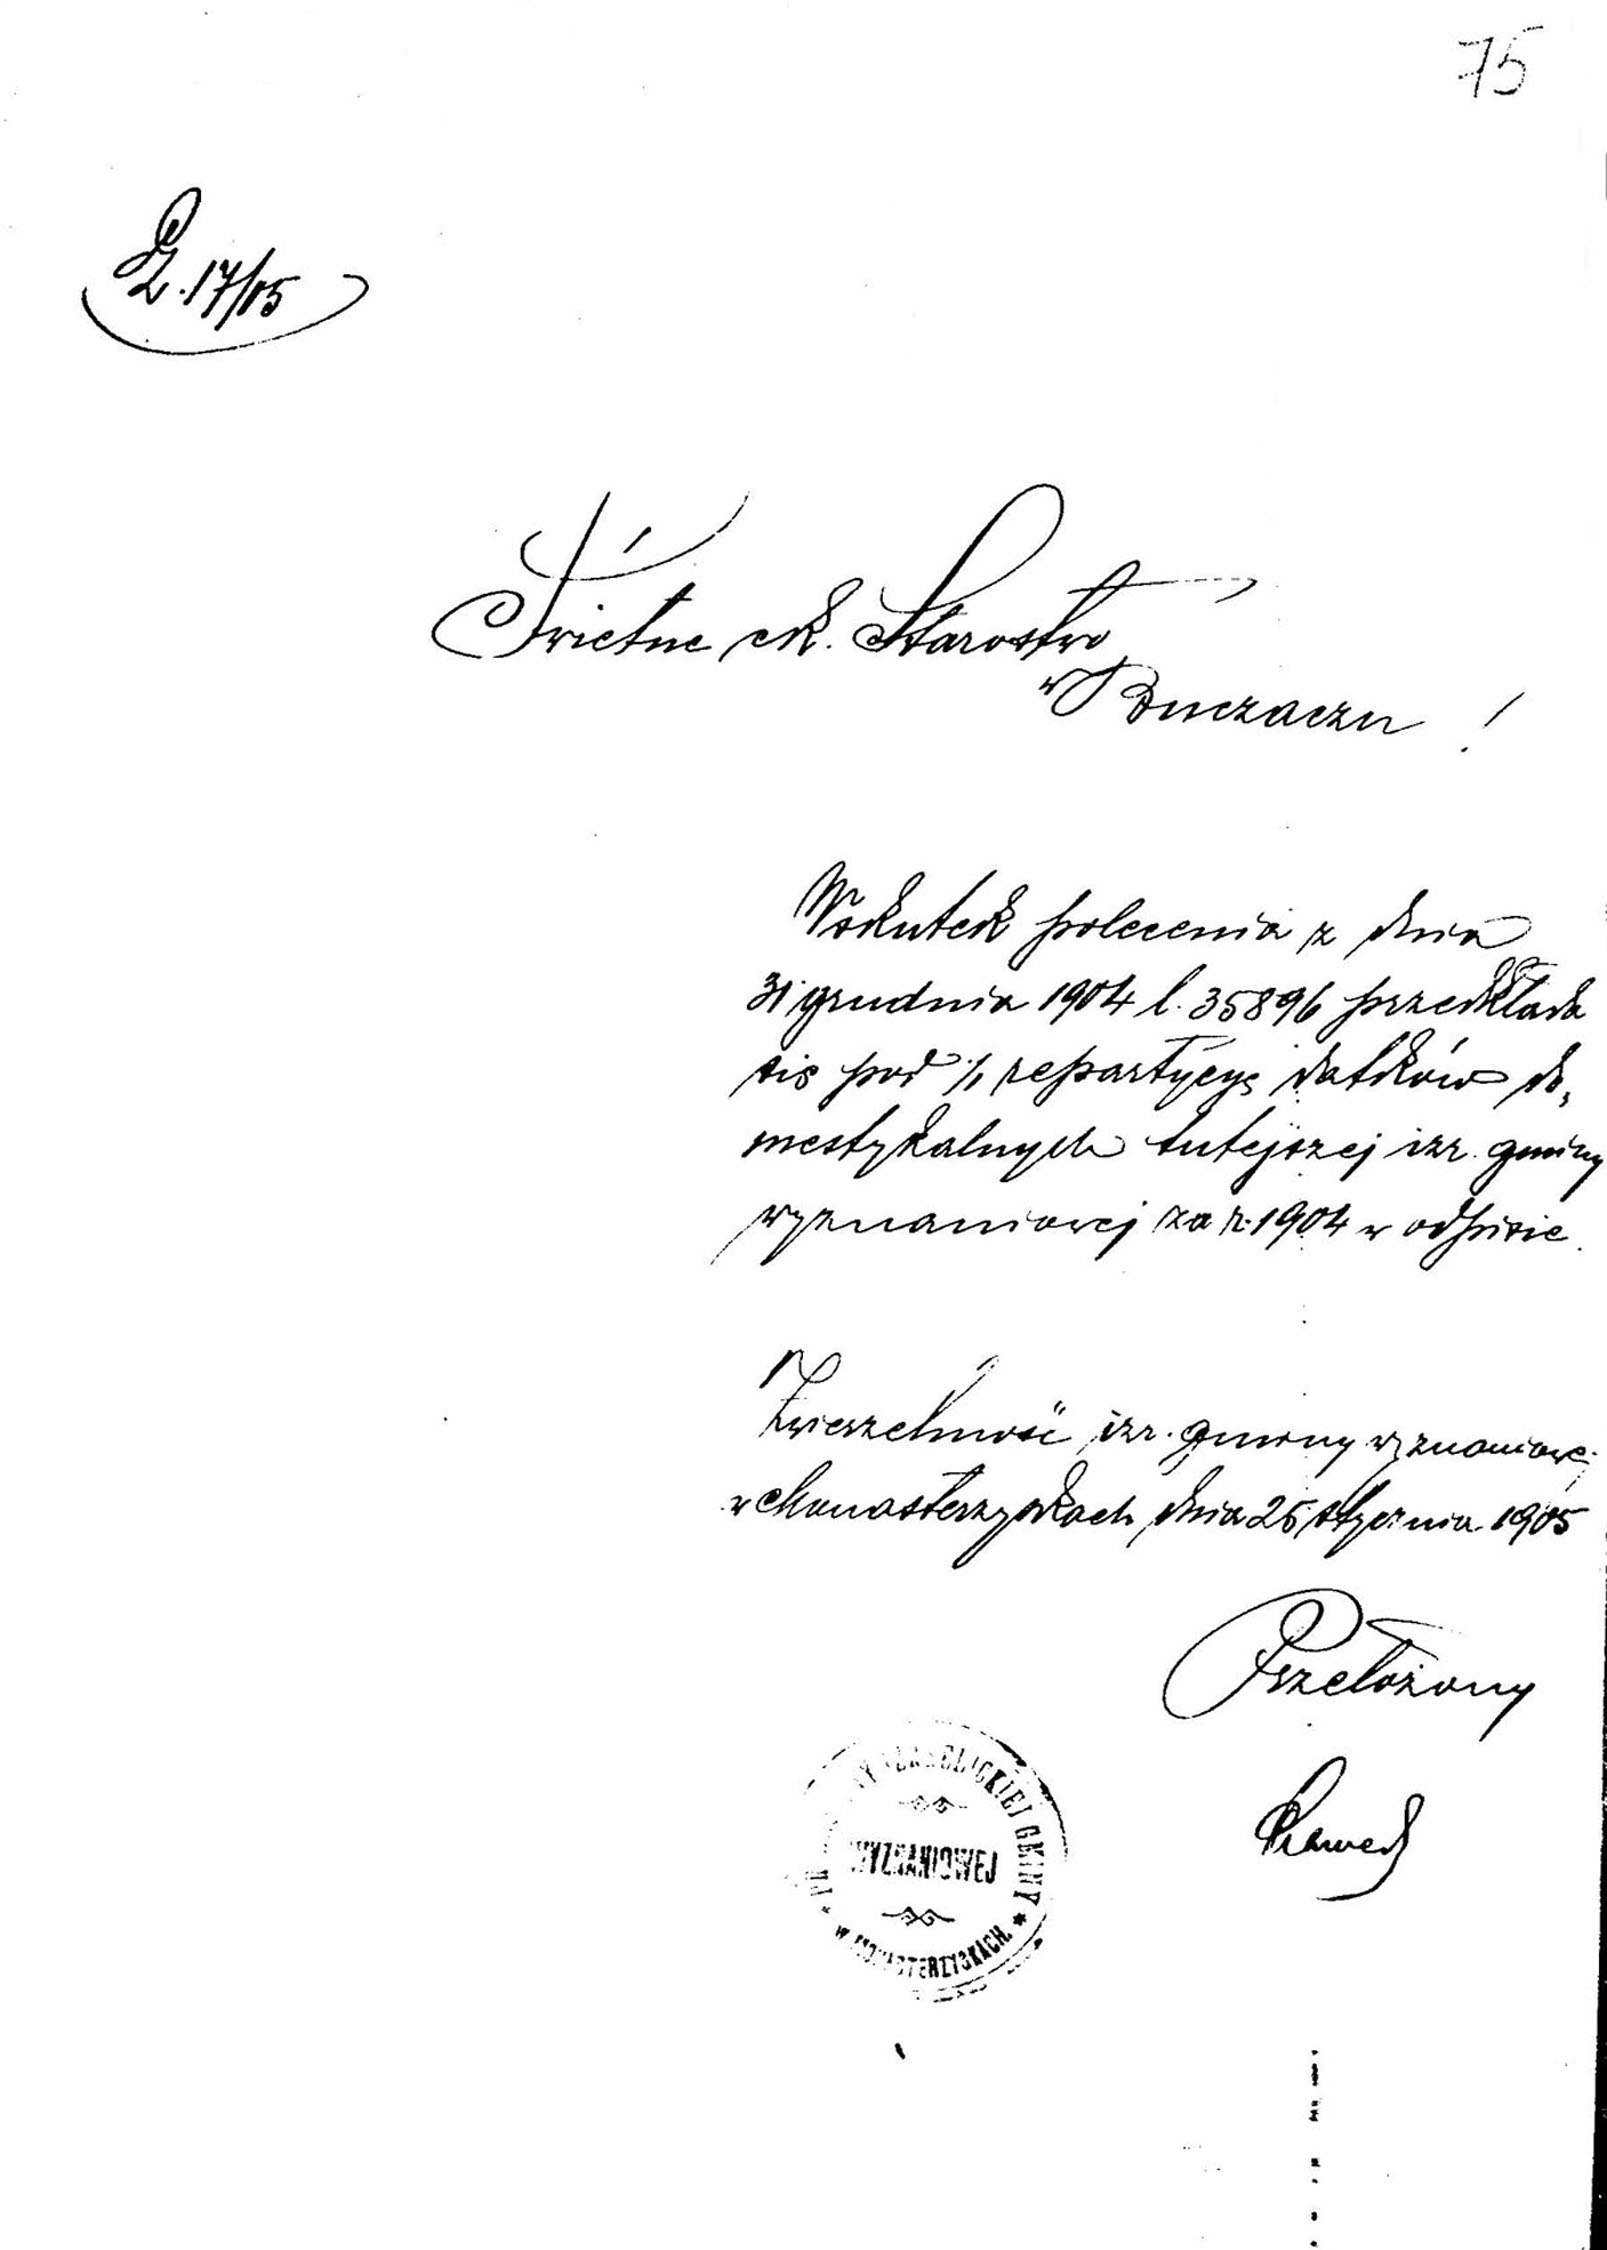 75
L. 17/05
Świetne ck. Starostwo
w Buczaczu !
Wskutek polecenia z dnia
31 grudnia 1904 l. 35896 przedkłada
się pod ·/. repartycyę datków do„
mestykalnych tutejszej izr. gminy
wyznaniowej za r. 1904 w odpisie.
Zwierzchność izr. gminy wyznaniowej
w Monasterzyskach dnia 25 stycznia 1905
Przełożony
IZRAELICKIEJ GMINY
WYZNANIOWEJ
* W MONASTERZYSKACH. *